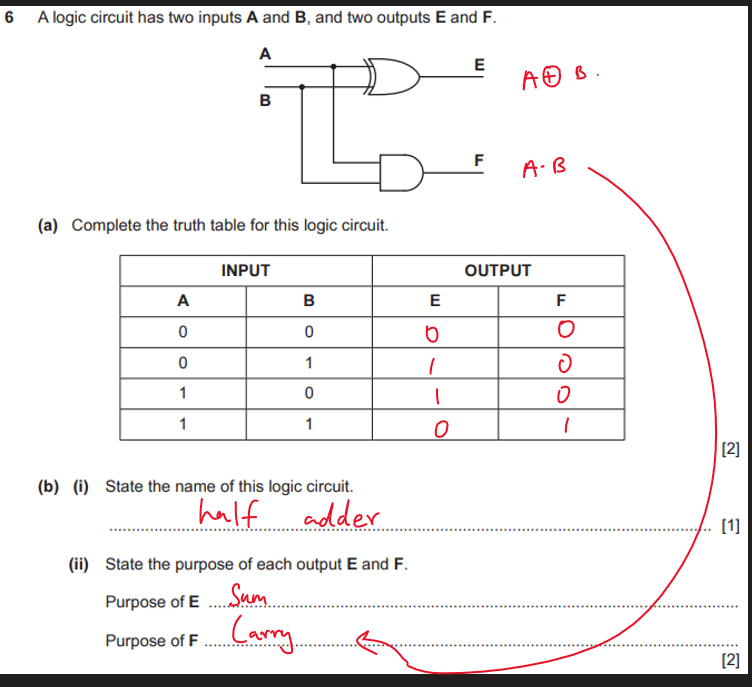 6 A logic circuit has two inputs A and B, and two outputs E and F.
A
E
A⊕B.
B
F
A·B
(a) Complete the truth table for this logic circuit.
INPUT OUTPUT
A B E F
0 0 0 0
0 1 1 0
1 0 1 0
1 1 0 1
[2]
(b) (i) State the name of this logic circuit.
half adder
[1]
(ii) State the purpose of each output E and F.
Purpose of E Sum
Purpose of F Carry
[2]